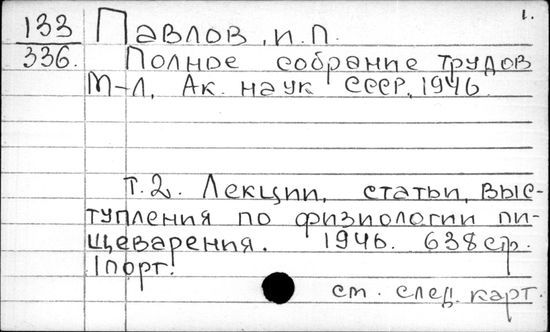 1.
133 Павлов, И.П.
336. Полное собрание трудов
М-Л, Ак. наук СССР, 1946
Т.2. Лекции, статьи, выс-
тупления по физиологии пи-
щеварения. 1946. 638 стр.
1 порт.
см. след. карт.